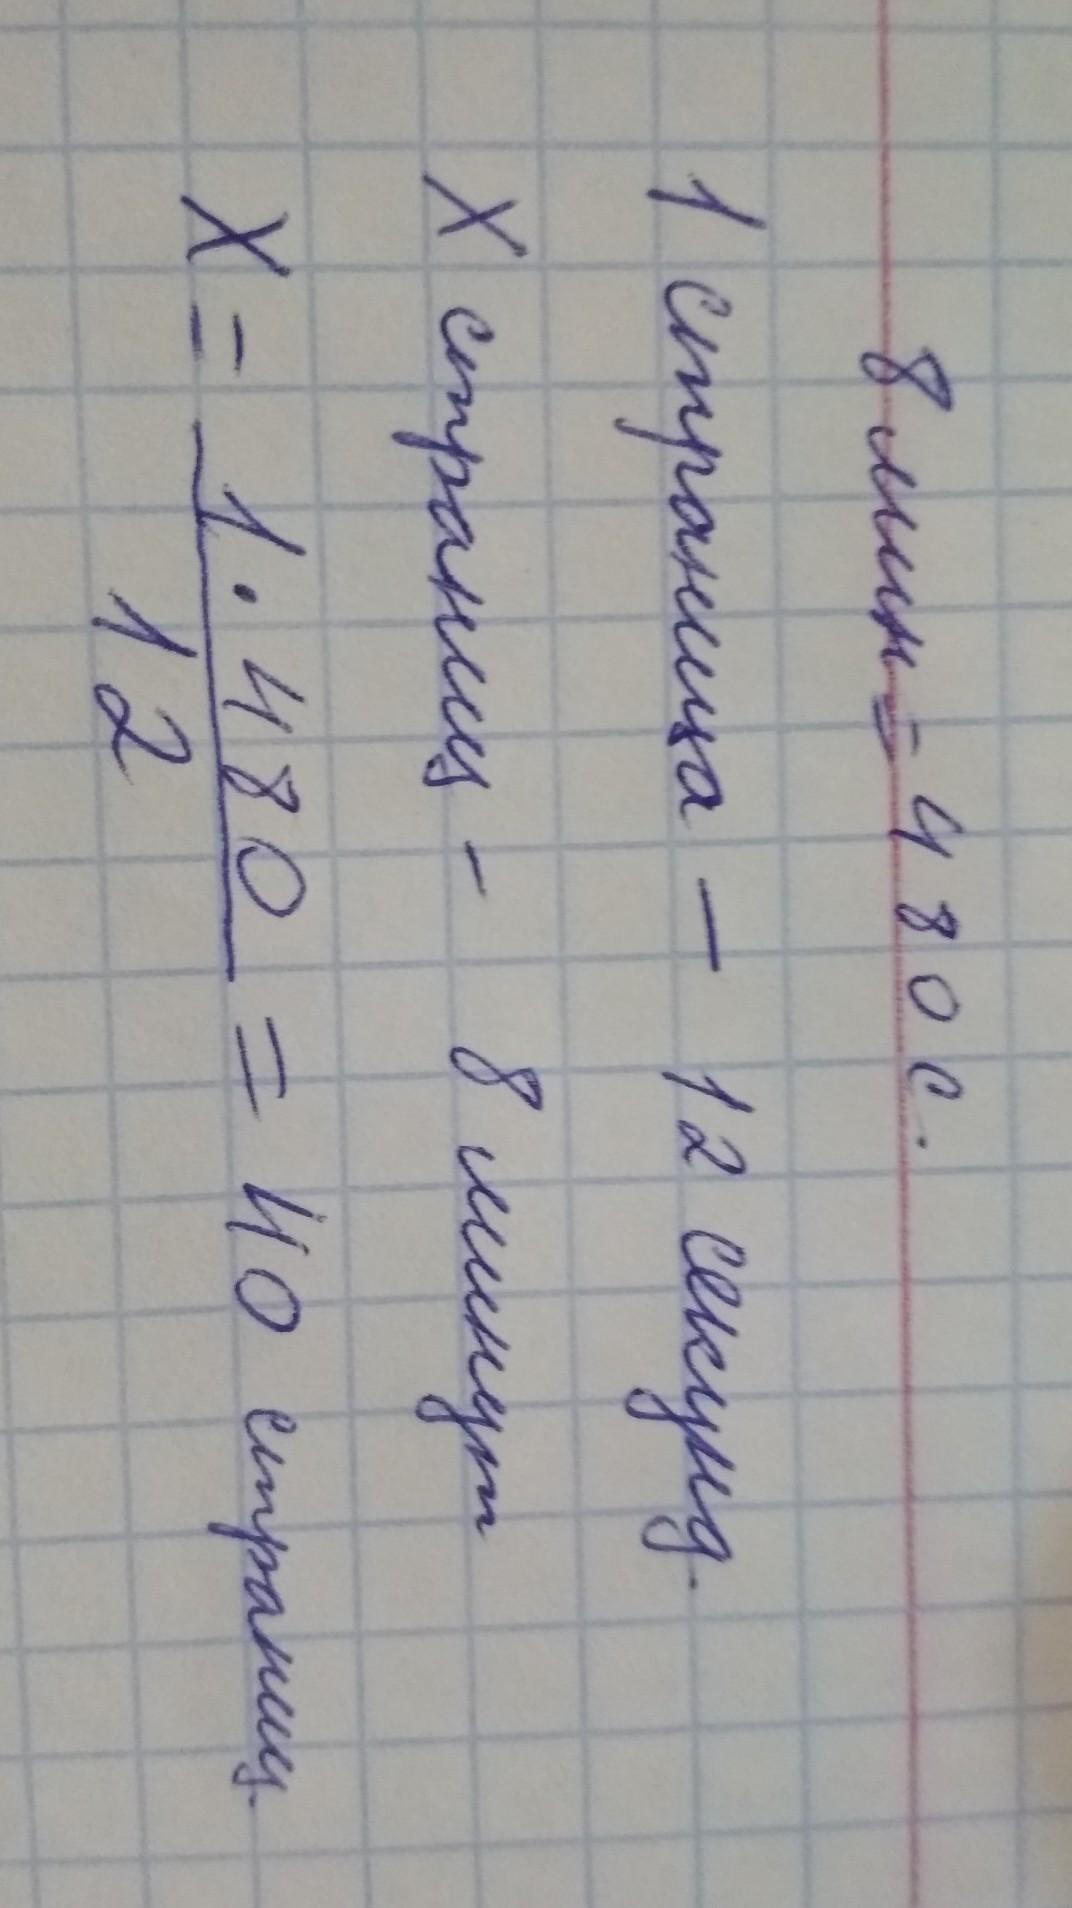 8 мин = 480 с.
1 страница — 12 секунд.
X страниц - 8 минут
X = 1 · 480 / 12 = 40 страниц.